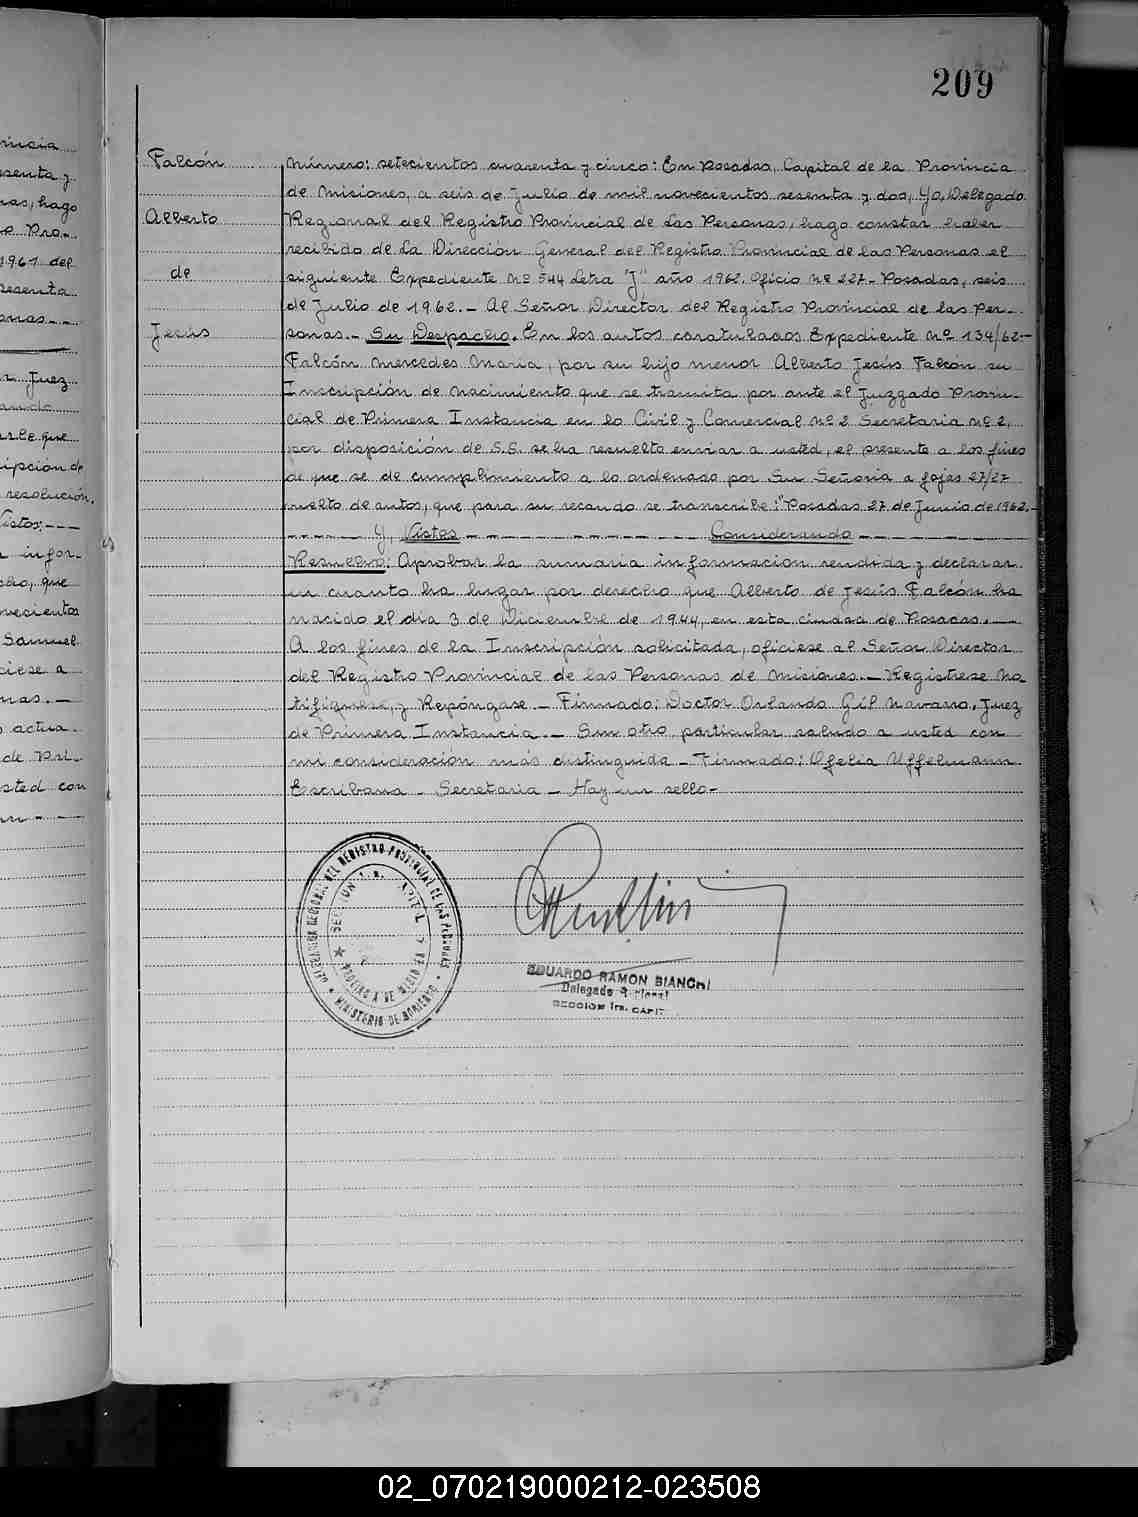 209
Falcón
Alberto
de
Jesús
Número: setecientos cuarenta y cinco: En Posadas, Capital de la Provincia
de Misiones, a seis de Julio de mil novecientos sesenta y dos, Yo, Delegado
Regional del Registro Provincial de las Personas, hago constar haber
recibido de la Dirección General del Registro Provincial de las Personas el
siguiente Expediente Nº 544 Letra "J" año 1962. Oficio Nº 227.- Posadas, seis
de Julio de 1962.- Al Señor Director del Registro Provincial de las Per-
sonas.- Su Despacho. En los autos caratulados Expediente Nº 134/62-
Falcón Mercedes Maria, por su hijo menor Alberto Jesús Falcón su
Inscripción de nacimiento que se tramita por ante el Juzgado Provin-
cial de Primera Instancia en lo Civil y Comercial Nº 2 Secretaria Nº 2,
por disposición de S.S. se ha resuelto enviar a usted, el presente a los fines
de que se de cumplimiento a lo ordenado por Su Señoria a fojas 27/27
vuelto de autos, que para su recaudo se transcribe: "Posadas 27 de Junio de 1962.-
- - - - - Y, Vistos - - - - - - - - - - - - - Considerando - - - - - - - -
Resuelvo: Aprobar la sumaria información rendida y declarar
en cuanto ha lugar por derecho que Alberto de Jesús Falcón ha
nacido el dia 3 de Diciembre de 1944, en esta ciudad de Posadas. ---
A los fines de la Inscripción solicitada, ofíciese al Señor Director
del Registro Provincial de las Personas de Misiones.- Registrese No
tifíquese, y Repóngase.- Firmado: Doctor Orlando Gil Navarro, Juez
de Primera Instancia.- Sin otro particular saludo a usted con
mi consideración más distinguida - Firmado: Ofelia Uffelmann
Escribana - Secretaria - Hay un sello-
DELEGACION REGIONAL DEL REGISTRO PROVINCIAL DE LAS PERSONAS
MINISTERIO DE GOBIERNO
EDUARDO RAMON BIANCHI
Delegado Regional
SECCION 1ra. CAPIT
vincia
esenta y
nas, hago
Pro-
1961 del
sesenta
onas.--
Juez
que
ipción de
resolución.
Vistos:---
infor-
cho, que
vecientos
Samuel
ciese a
nas.-
actua.
de Pri-
sted con
02_070219000212-023508